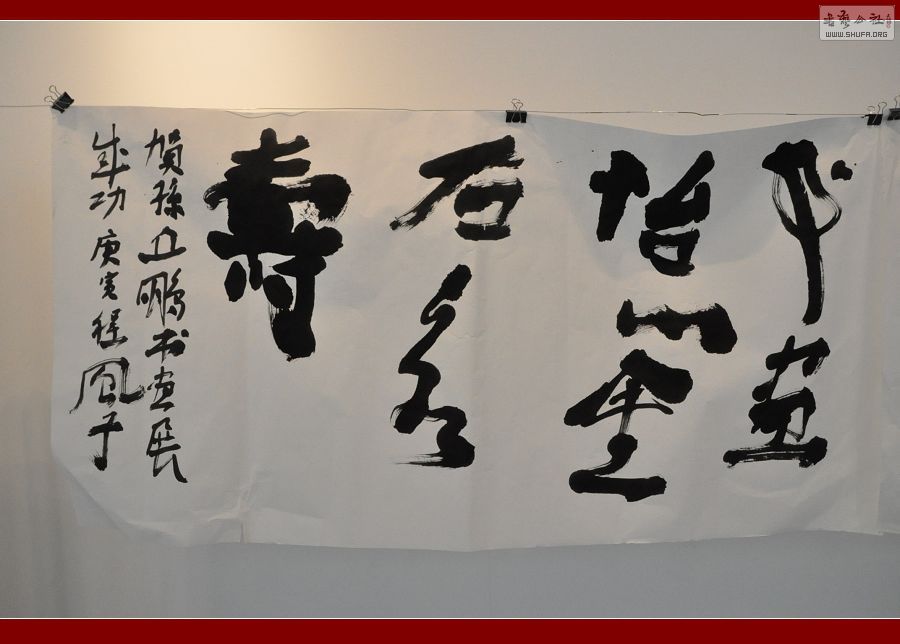 书画
怡心金
石永
寿
賀孫立鹏书画展
成功 庚寅程風子
書藝公社
WWW.SHUFA.ORG